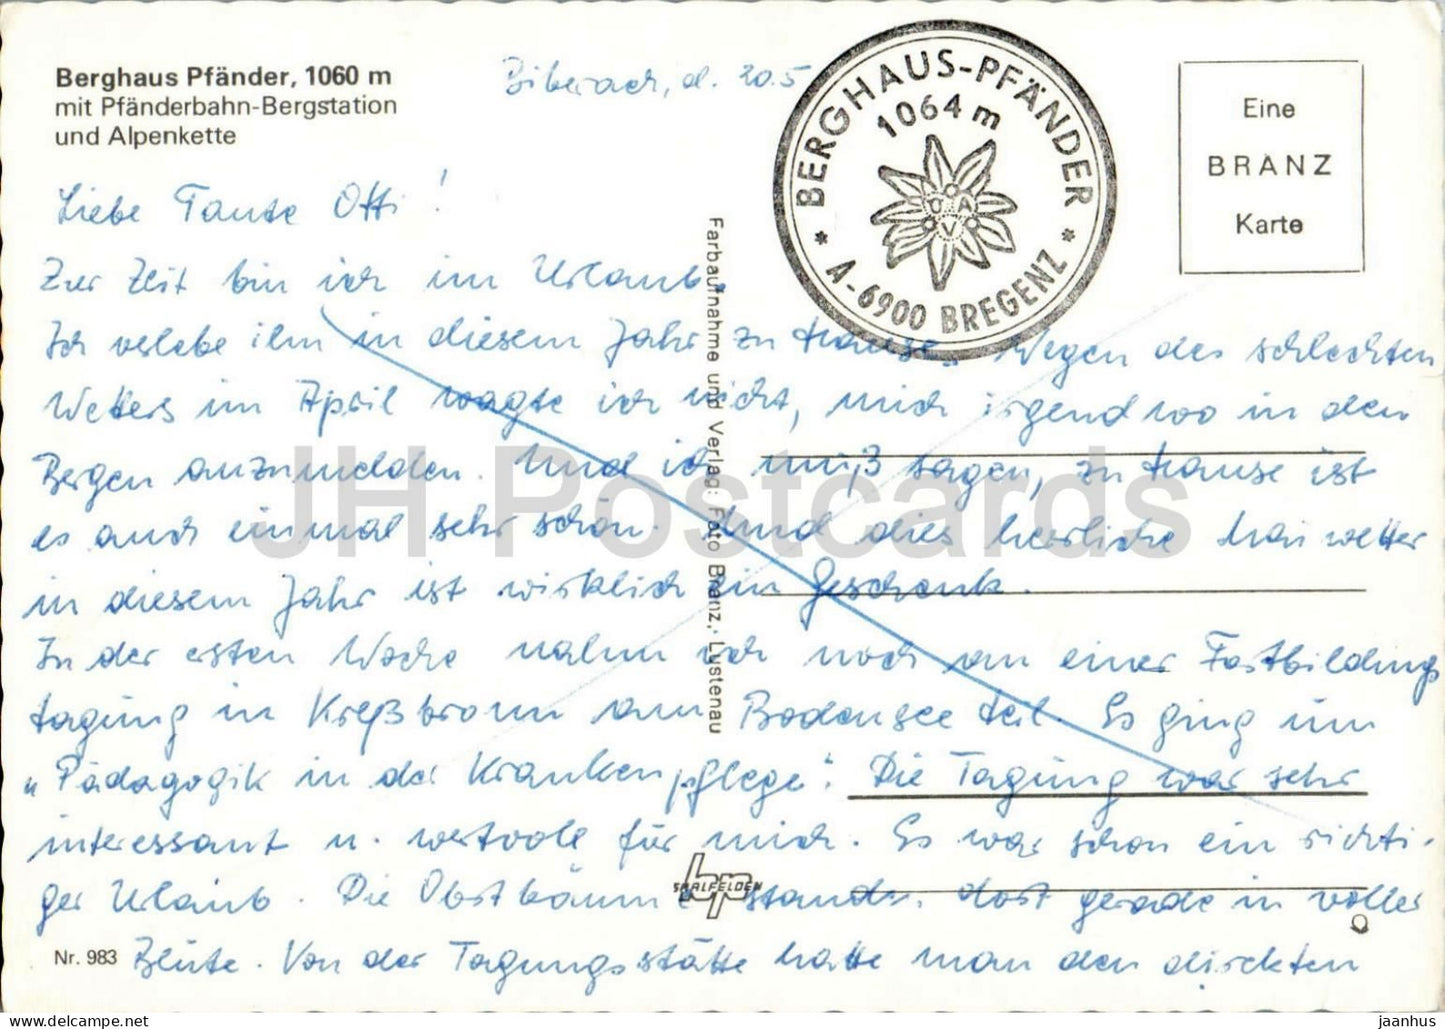 Berghaus Pfänder, 1060 m
mit Pfänderbahn-Bergstation
und Alpenkette
Biberach, d. 20.5
BERGHAUS-PFÄNDER
1064 m
ÖAV
* A-6900 BREGENZ *
Eine
BRANZ
Karte
Liebe Tante Otti!
Zur Zeit bin ich im Urlaub.
Ich verlebe ihn in diesem Jahr zu Hause. Wegen des schlechten
Wetters im April wagte ich nicht, mich irgendwo in den
Bergen anzumelden. Und ich muß sagen, zu Hause ist
es auch einmal sehr schön. Und dies herrliche Maiwetter
in diesem Jahr ist wirklich ein Geschenk.
In der ersten Woche nahm ich noch an einer Fortbildungs
tagung in Kreßbronn am Bodensee teil. Es ging um
„Pädagogik in der Krankenpflege". Die Tagung war sehr
interessant u. wertvoll für mich. Es war schon ein richti-
ger Urlaub. Die Obstbäume standen dort gerade in voller
Blüte. Von der Tagungsstätte hatte man den direkten
Farbaufnahme und Verlag: Foto Branz, Lustenau
bp
SAALFELDEN
Nr. 983
JH Postcards
jaanhus — https://jhpostcards.com